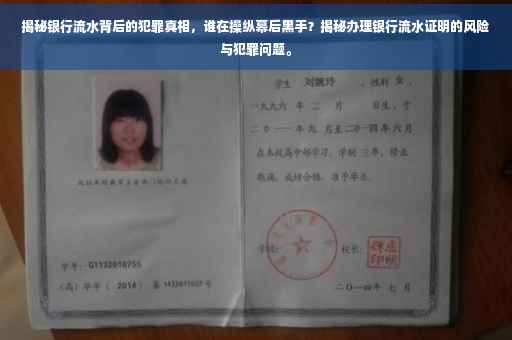 揭秘银行流水背后的犯罪真相，谁在操纵幕后黑手？揭秘办理银行流水证明的风险
与犯罪问题。
学生 刘婉玲 、性别 女 、
一九九六 年 二 月 日生，于
二〇一一年 九 月至二〇一四年 六 月
在本校高中部学习，学制 三年，修业
期满，成绩合格，准予毕业。
学号： G1132010755
（高）毕字（ 2014 ）第 1432011007 号
学校：
校长：
二〇一四年 七 月